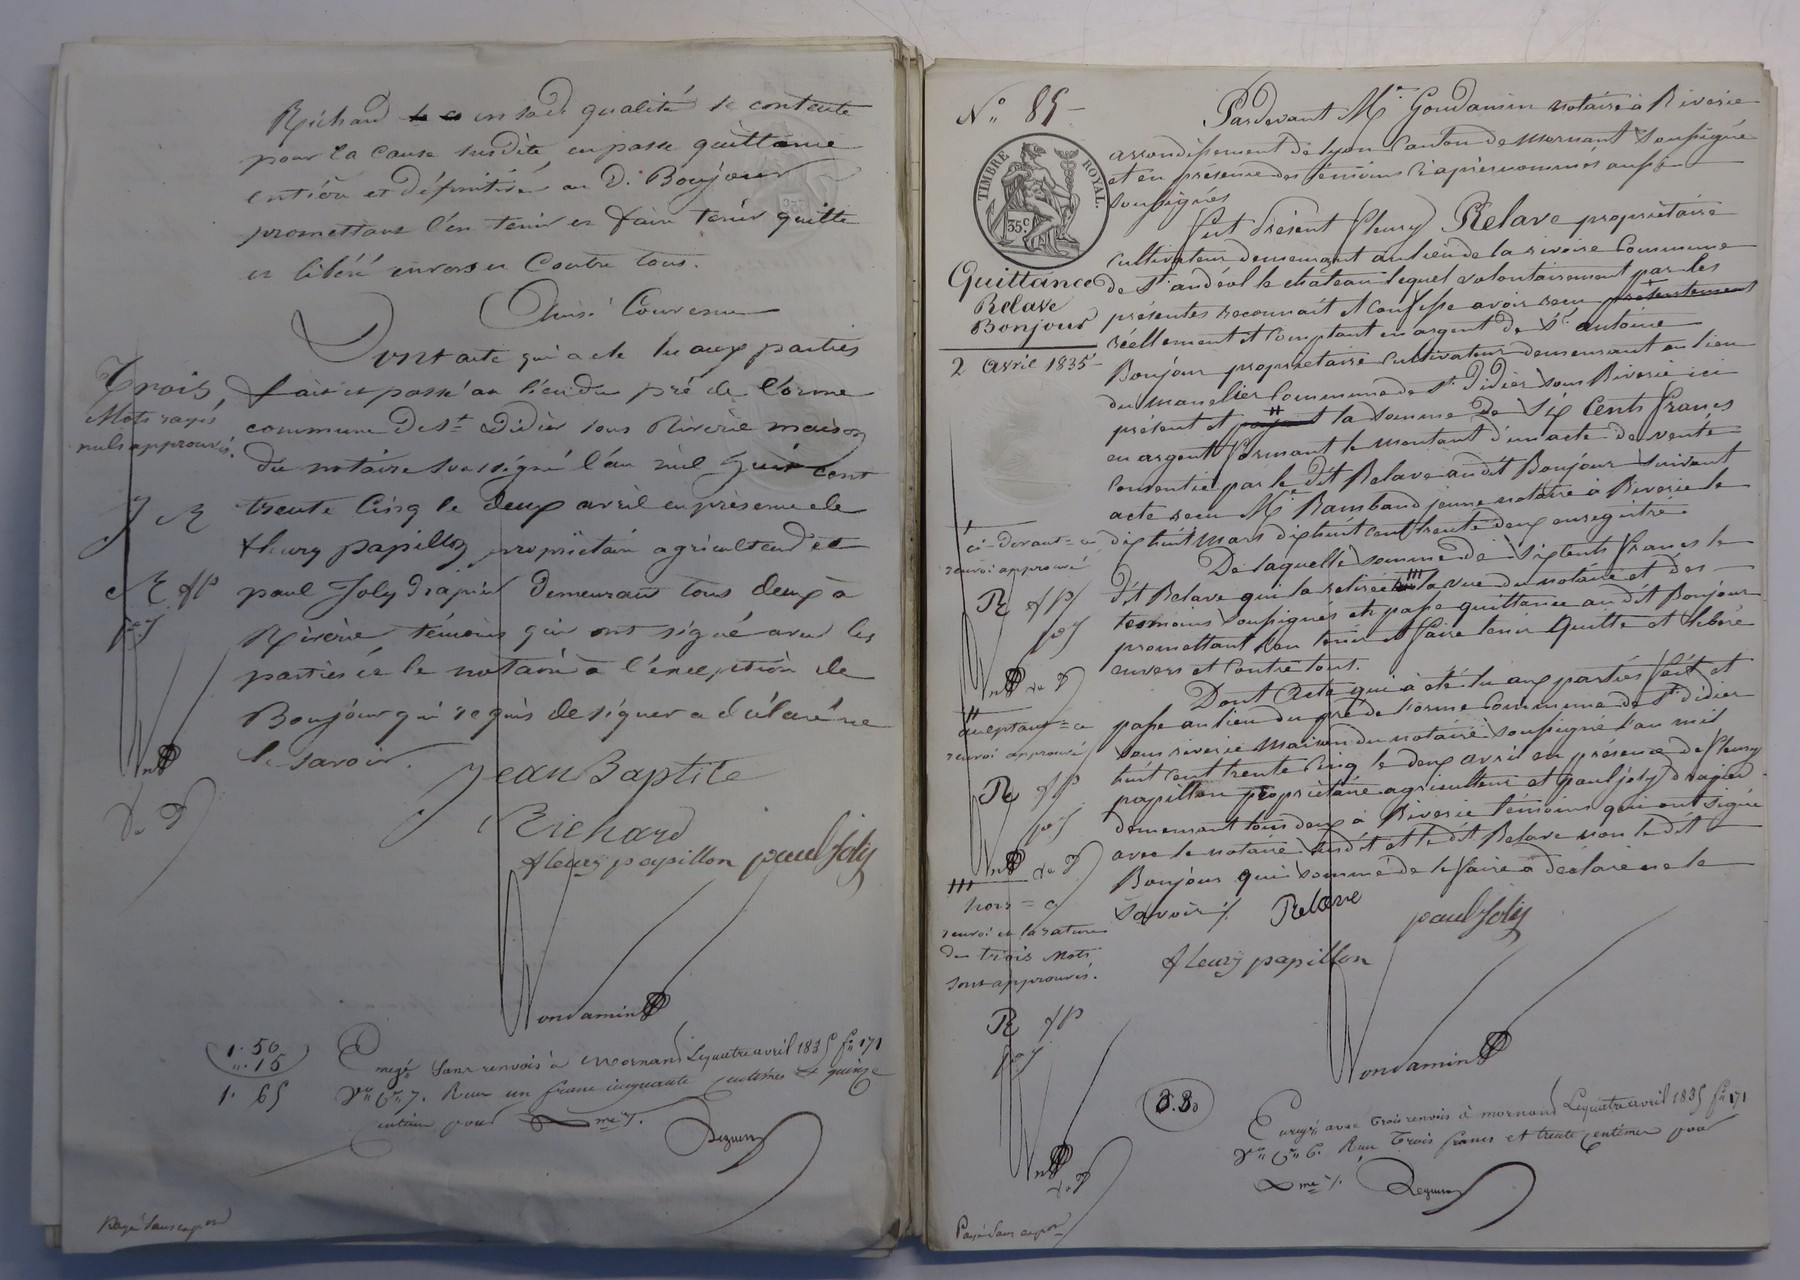 Richard en sade qualité se contente
pour la Cause susdite en passe quittance
entière et définitive au d. Boujour
promettant l'en tenir et faire tenir quitte
et libéré envers et Contre tous.
Ainsi Convenu
Dont acte qui a été lu aux parties
fait et passé au lieu du pré de l'orme
commune de St Didier sous Riverie maison
du notaire soussigné l'an mil huit cent
trente Cinq le deux avril en présence de
fleury papillon propriétaire agriculteur et
paul Joly Drapier demeurant tous deux à
Riverie témoins qui ont signé avec les
parties et le notaire à l'exception de
Boujour qui requis de signer a déclaré ne
le savoir.
Trois
Mots rayés
nuls approuvés.
J R
R fp
pJ
Jean Baptite
Richard
fleury papillon paul Joly
Gondamin
1. 50
". 15
1. 65
Enregé Sans renvois à Mornant Le quatre avril 1835 fo 171
Vo Ce 7. Reçu un franc cinquante centimes et quinze
centimes pour Dme %.
Payé Sans expon
No 85
Pardevant Me Goudamin notaire à Riverie
arrondissement de Lyon Canton de Mornant Soussigné
et en présence des témoins Ci après nommés aussi
soussignés
TIMBRE ROYAL.
35c
Quittance
Relave
Bonjour
2 avril 1835
fut Présent fleury Relave propriétaire
cultivateur demeurant au lieu de la rivoire Commune
de St andéol le chateau lequel volontairement par les
présentes reconnait et confesse avoir reçu présentement
réellement et Comptant en argent de Sr antoine
Bonjour propriétaire Cultivateur demeurant au lieu
du manelier Commune de St Didier sous Riverie ici
présent et la somme de Six Cents francs
en argent formant le montant d'un acte de vente
Consentie par le dit Relave au dit Bonjour Suivant
acte reçu Me Rambaud jeune notaire à Riverie le
dix huit mars dix huit cent trente deux enregistré.
De laquelle somme de Six Cents francs le
dit Relave qui la retirée la vue du notaire et des
témoins Soussignés en passe quittance au dit Bonjour
promettant l'en tenir et faire tenir Quitte et libéré
envers et Contre tout.
Dont Acte qui a été lu aux parties fait et
passé au lieu du pré de l'orme Commune de St didier
sous riverie Maison du notaire soussigné l'an mil
huit cent trente Cinq le deux avril en présence de fleury
papillon propriétaire agriculteur et paul joly drapier
demeurant tous deux à Riverie témoins qui ont signé
avec le notaire susdit et le dit Relave non le dit
Bonjour qui sommé de le faire a déclaré ne le
savoir %
ci-devant = a
renvoi approuvé
R fp
pJ
acceptant = a
renvoi approuvé
R fp
pJ
hors = a
renvoi et la rature
de trois Mots
sont approuvés.
R fp
pJ
Relave
paul Joly
fleury papillon
Gondamin
3. 30
Enregé avec trois renvois à mornant Le quatre avril 1835 fo 171
Vo Ce 6. Reçu Trois francs et trente centimes pour
Dme %.
Payé Sans expon